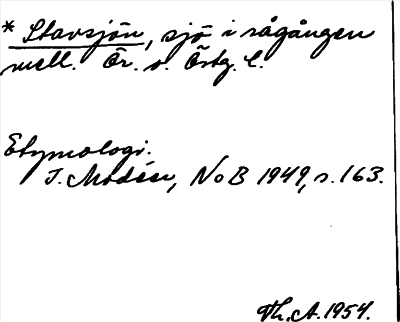 * Stavsjön, sjö i rågången
mell. Ör. o. Östg. l.
Etymologi.
I. Modéer, NoB 1949, s. 163.
Th. A. 1954.